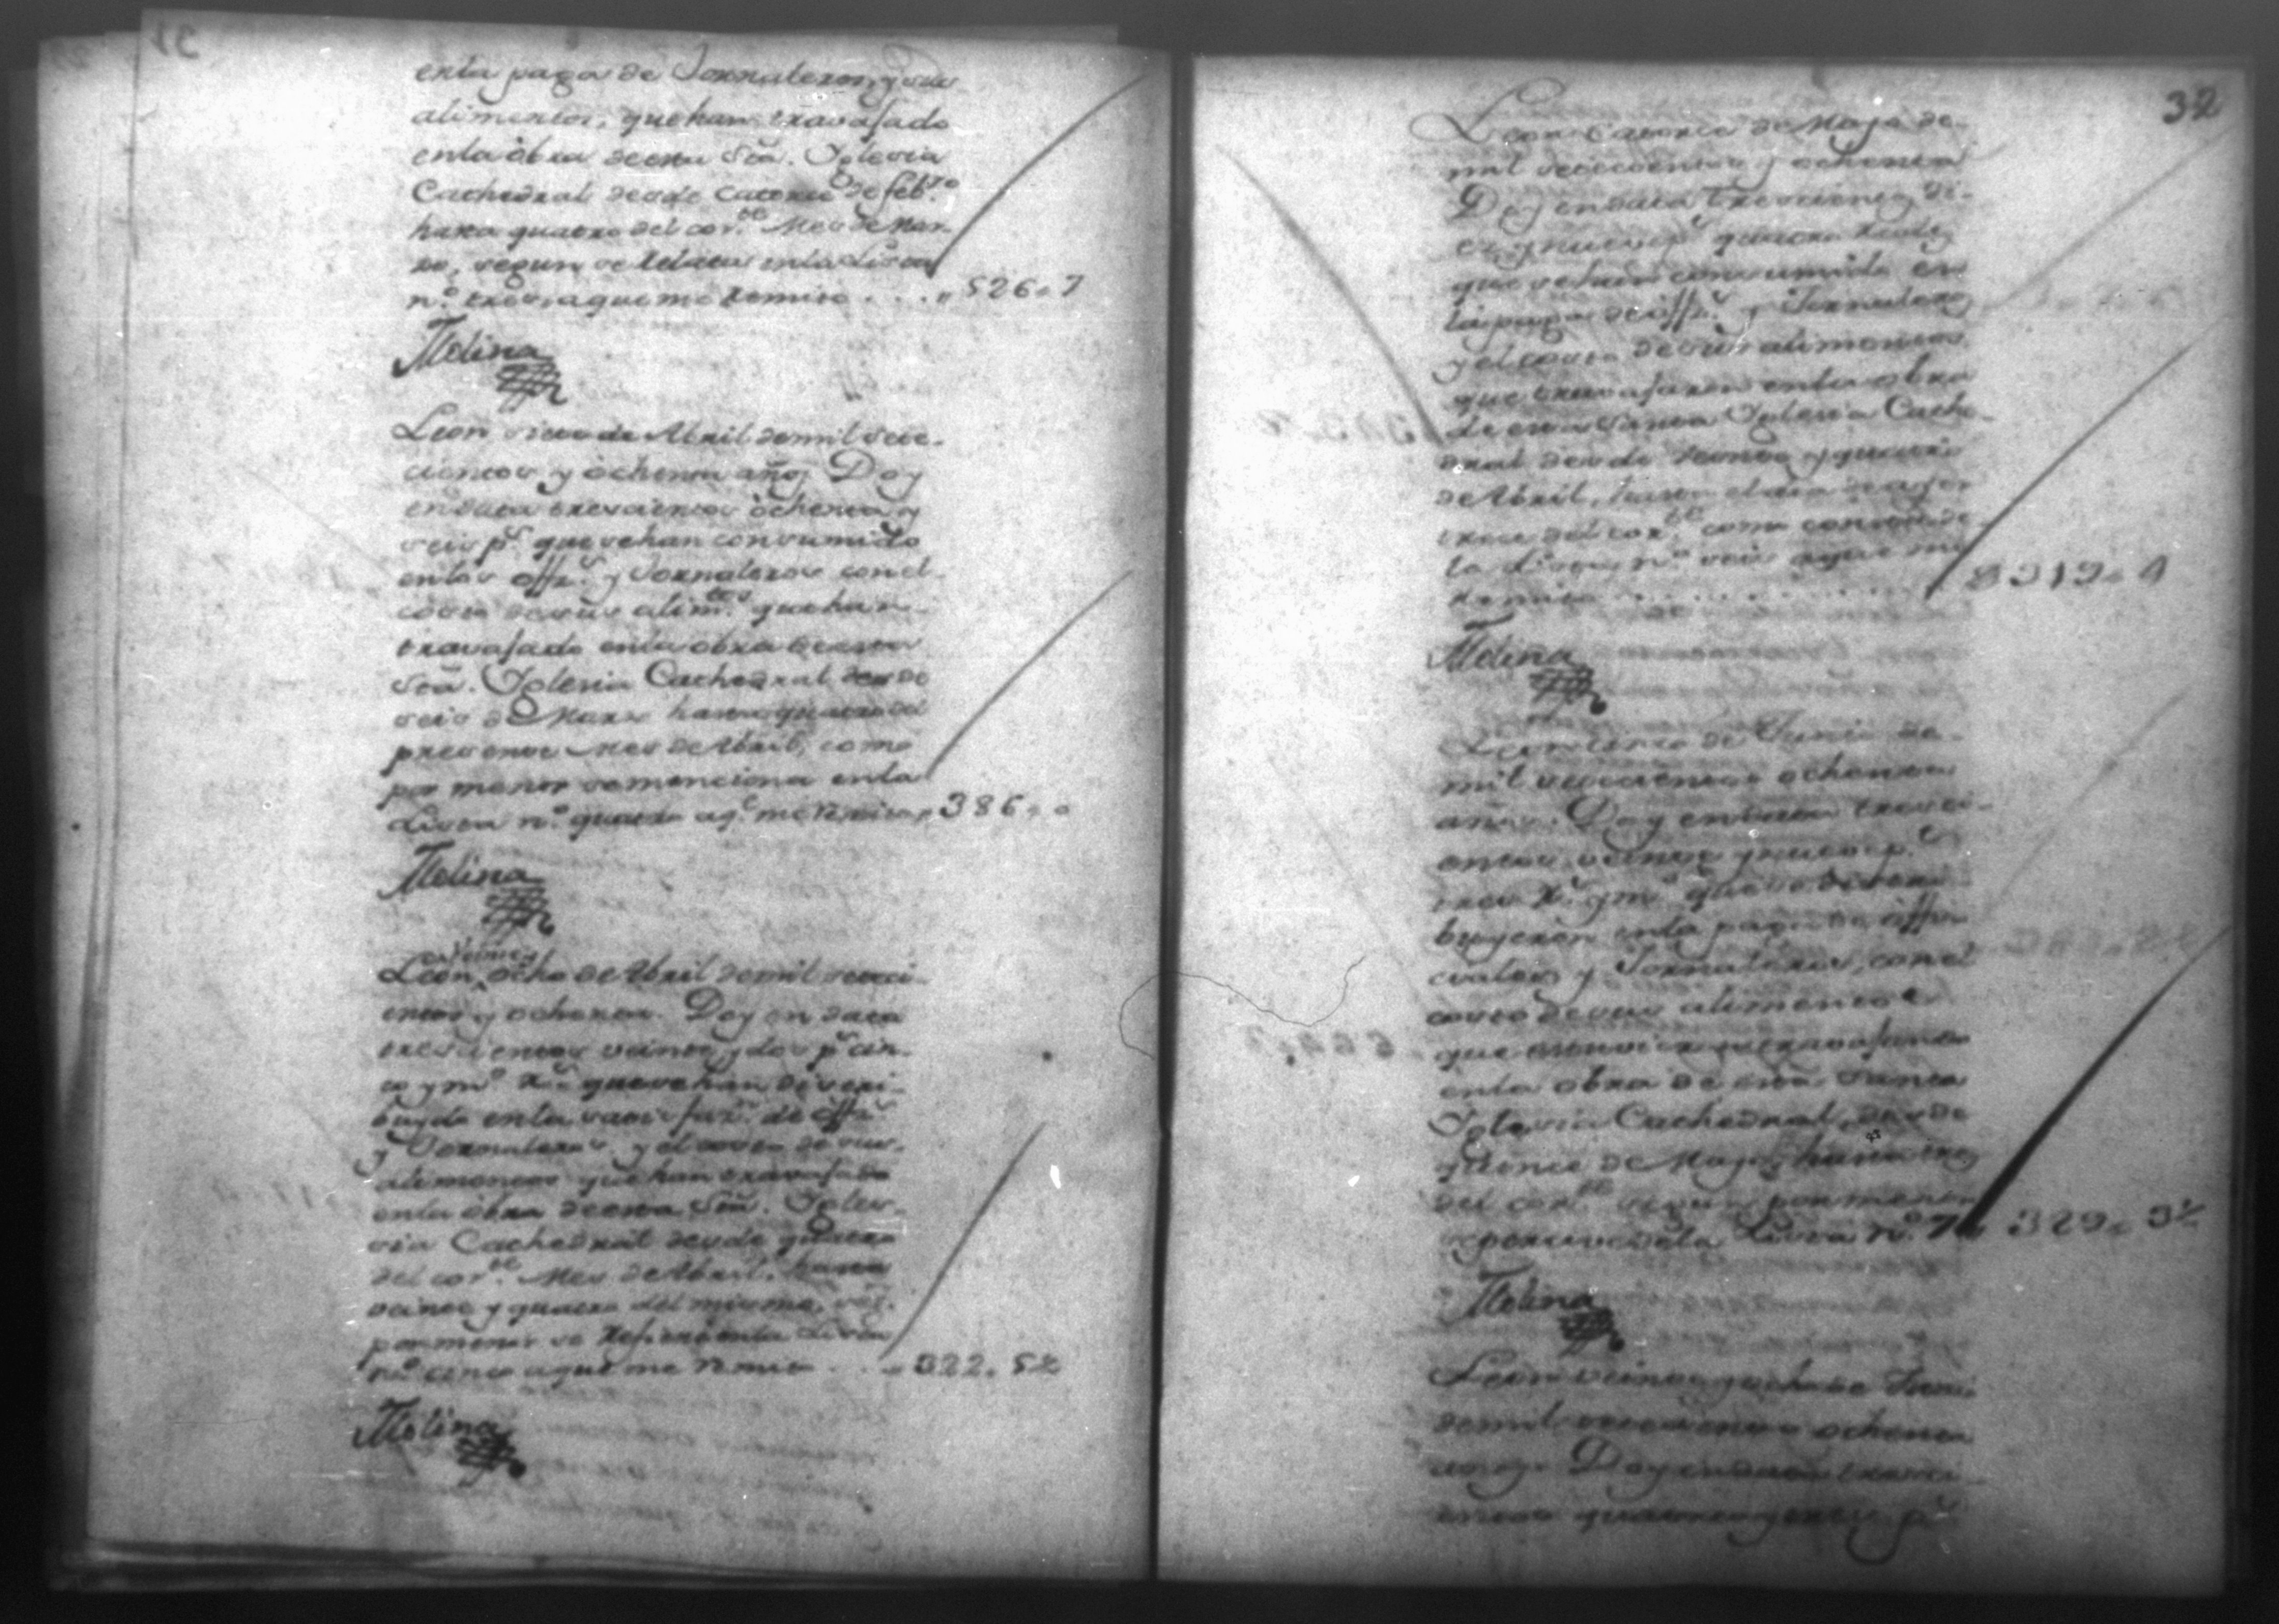 enla paga de Jornaleros, y sus
alimentos, que han travajado
enla òbra deesta Sta. Iglesia
Cathedral desde catorce de febro.
hasta quatro del corte. Mes de Mar-
zo, segun se Relata enla Lista
n.º tres aque me Remito . . . . " 526 " 7
Molina
Leon siete de Abril demil sete-
cientos y òchenta años Doy
endata trescientos òchenta y
seis ps. que sehan consumido
enlos offs. y Jornaleros con el
costo desus alimtos. que han
travajado enla obra deesta
Sta. Iglesia Cathedral desde
seis de Marzo hasta quatro del
presente Mes de Abril, como
por menor semenciona enla
Lista n.º quatro aqe. me Remito " 386 " 0
Molina
veinte y
Leon, ocho de Abril demil seteci-
entos y ochenta. Doy en data
trescientos veinte y dos ps. cin-
co y mo. rs. que sehan destri-
buydo enla satisfazn. de offs.
y Jornaleros y el costo de sus
alimentos que han travajado
enla òbra deesta Sta. Igles-
sia Cathedral desde quatro
del corte. Mes de Abril, hasta
veinte y quatro del mismo, seg.
pormenor se Refiere enla Lista
n.º cinco aque me Remito . . . " 322 " 5½
Molina
32
Leon Catorce de Mayo de
mil setecientos y ochenta
Doy endata trescientos di-
ez y nueve ps. quatro Reales
que sehan consumido en
la paga de offs. y Jornaleros
y el costo desus alimentos
que travajaron enla obra
de esta Santa Iglesia Cathe-
dral desde veinte y quatro
de Abril, hasta el dia
trece del corte. como consta de
la Lista n.º seis aque me
Remito . . . . . . . . . . . " 319 " 4
Molina
Leon de Junio de
mil setecientos ochenta
años. Doy endata tresci-
entos veinte y nueve ps.
tres rs. y mo. que se destri-
buyeron enla paga de offi-
ciales y Jornaleros, con el
costo desus alimentos
que estuvieron travajando
enla obra de esta Santa
Iglesia Cathedral, desde
quince de Mayo, hasta tres
del corte. segun pormenor
sepercive dela Lista n.º 7 " 329 " 3½
Molina
Leon veinte y ocho de Junio
demil setecientos ochenta
años. Doy endata tresci-
entos quarenta y tres ps.